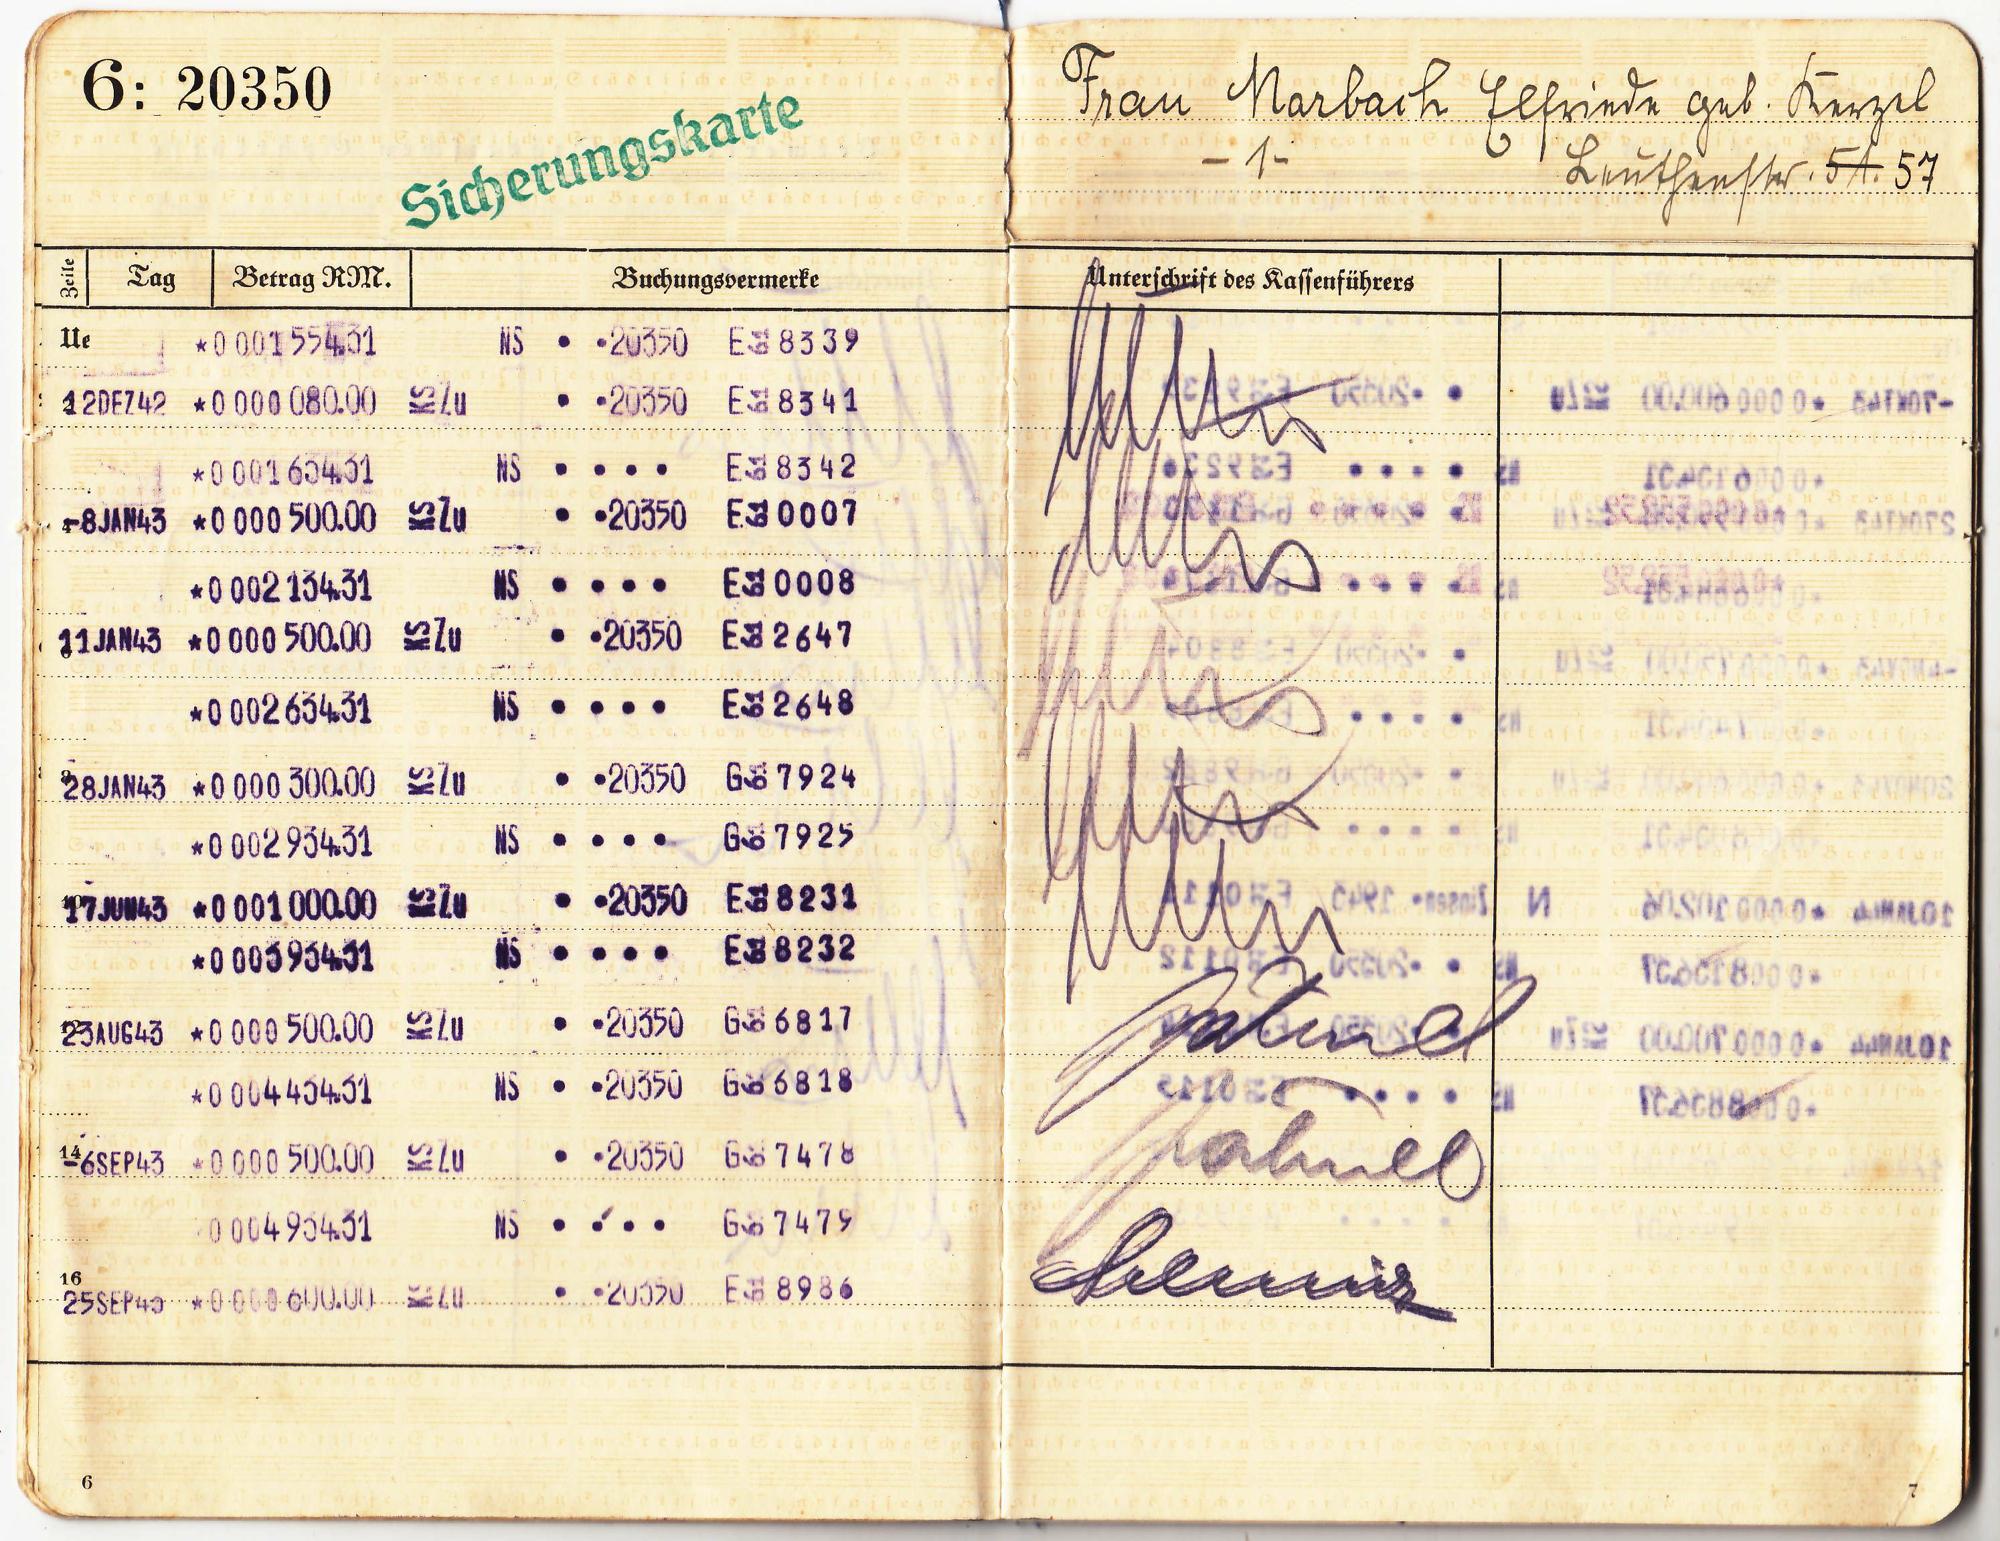 6: 20350
Sicherungskarte
Frau Marbach Elfriede geb. Kerzel
-1- Leuthenstr. 51. 57
Zeile Tag Betrag RM. Buchungsvermerke Unterschrift des Kassenführers
Ue *0 001 554.31 NS • •20350 E 8339
12DEZ42 *0 000 080.00 KS Zu • •20350 E 8341
*0 001 634.31 NS • • • • E 8342
-8JAN43 *0 000 500.00 KS Zu • •20350 E 0007
*0 002 134.31 NS • • • • E 0008
11JAN43 *0 000 500.00 KS Zu • •20350 E 2647
*0 002 634.31 NS • • • • E 2648
28JAN43 *0 000 300.00 KS Zu • •20350 G 7924
*0 002 934.31 NS • • • • G 7925
17JUN43 *0 001 000.00 KS Zu • •20350 E 8231
*0 003 934.31 NS • • • • E 8232
23AUG43 *0 000 500.00 KS Zu • •20350 G 6817
*0 004 434.31 NS • •20350 G 6818
14
-6SEP43 *0 000 500.00 KS Zu • •20350 G 7478
0 004 934.31 NS • • • • G 7479
16
25SEP43 *0 000 600.00 KS Zu • •20350 E 8986
6
7